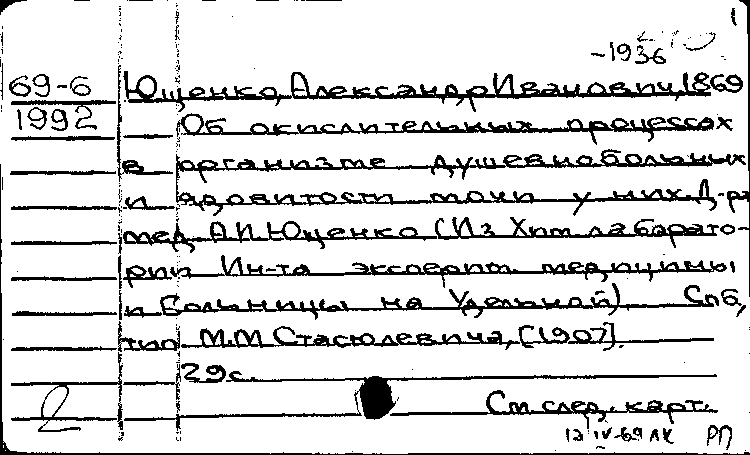 1
-1936
69-6 Ющенко, Александр Иванович, 1869
1992 Об окислительных процессах
в организме душевнобольных
и ядовитости мочи у них. Д-ра
мед. А.И. Ющенко (Из Хим. лаборато-
рии Ин-та эксперим. медицины
и Больницы на Удельной). Спб,
тип. М.М. Стасюлевича, [1907].
29 с.
2 См. след. карт.
12 IV-69 ЛК РП